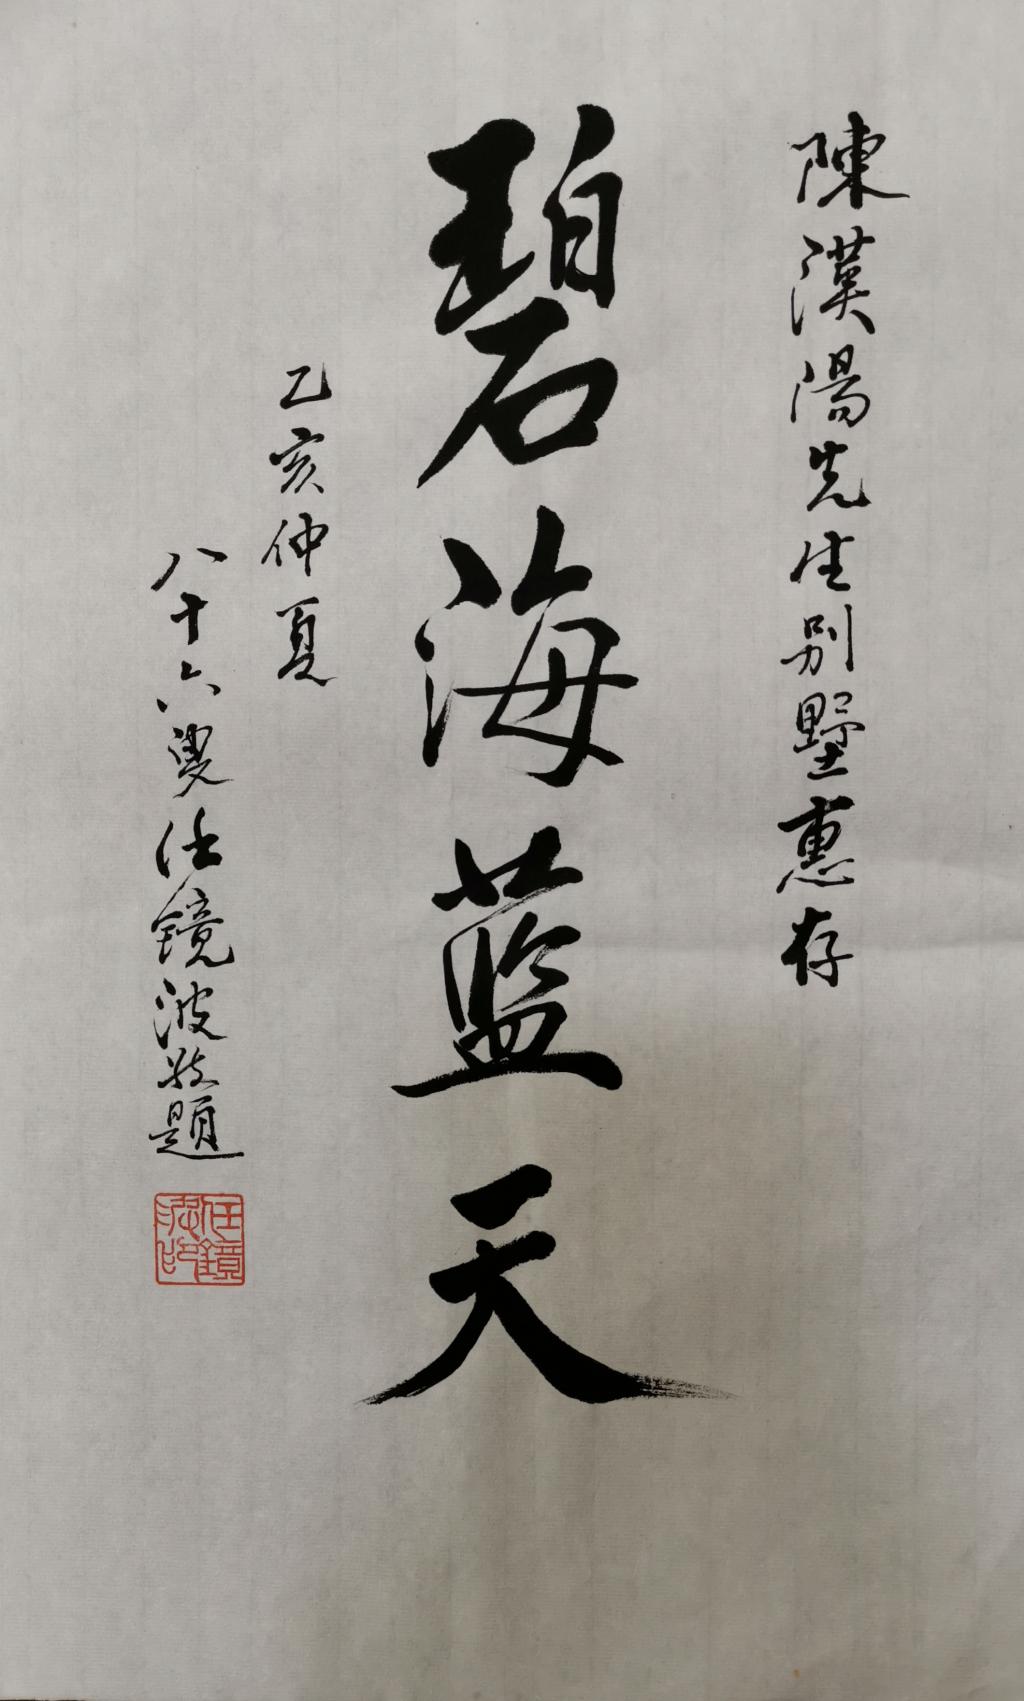 陳漢陽先生別墅惠存
碧海藍天
乙亥仲夏
八十六叟任鏡波敬題
任鏡波印